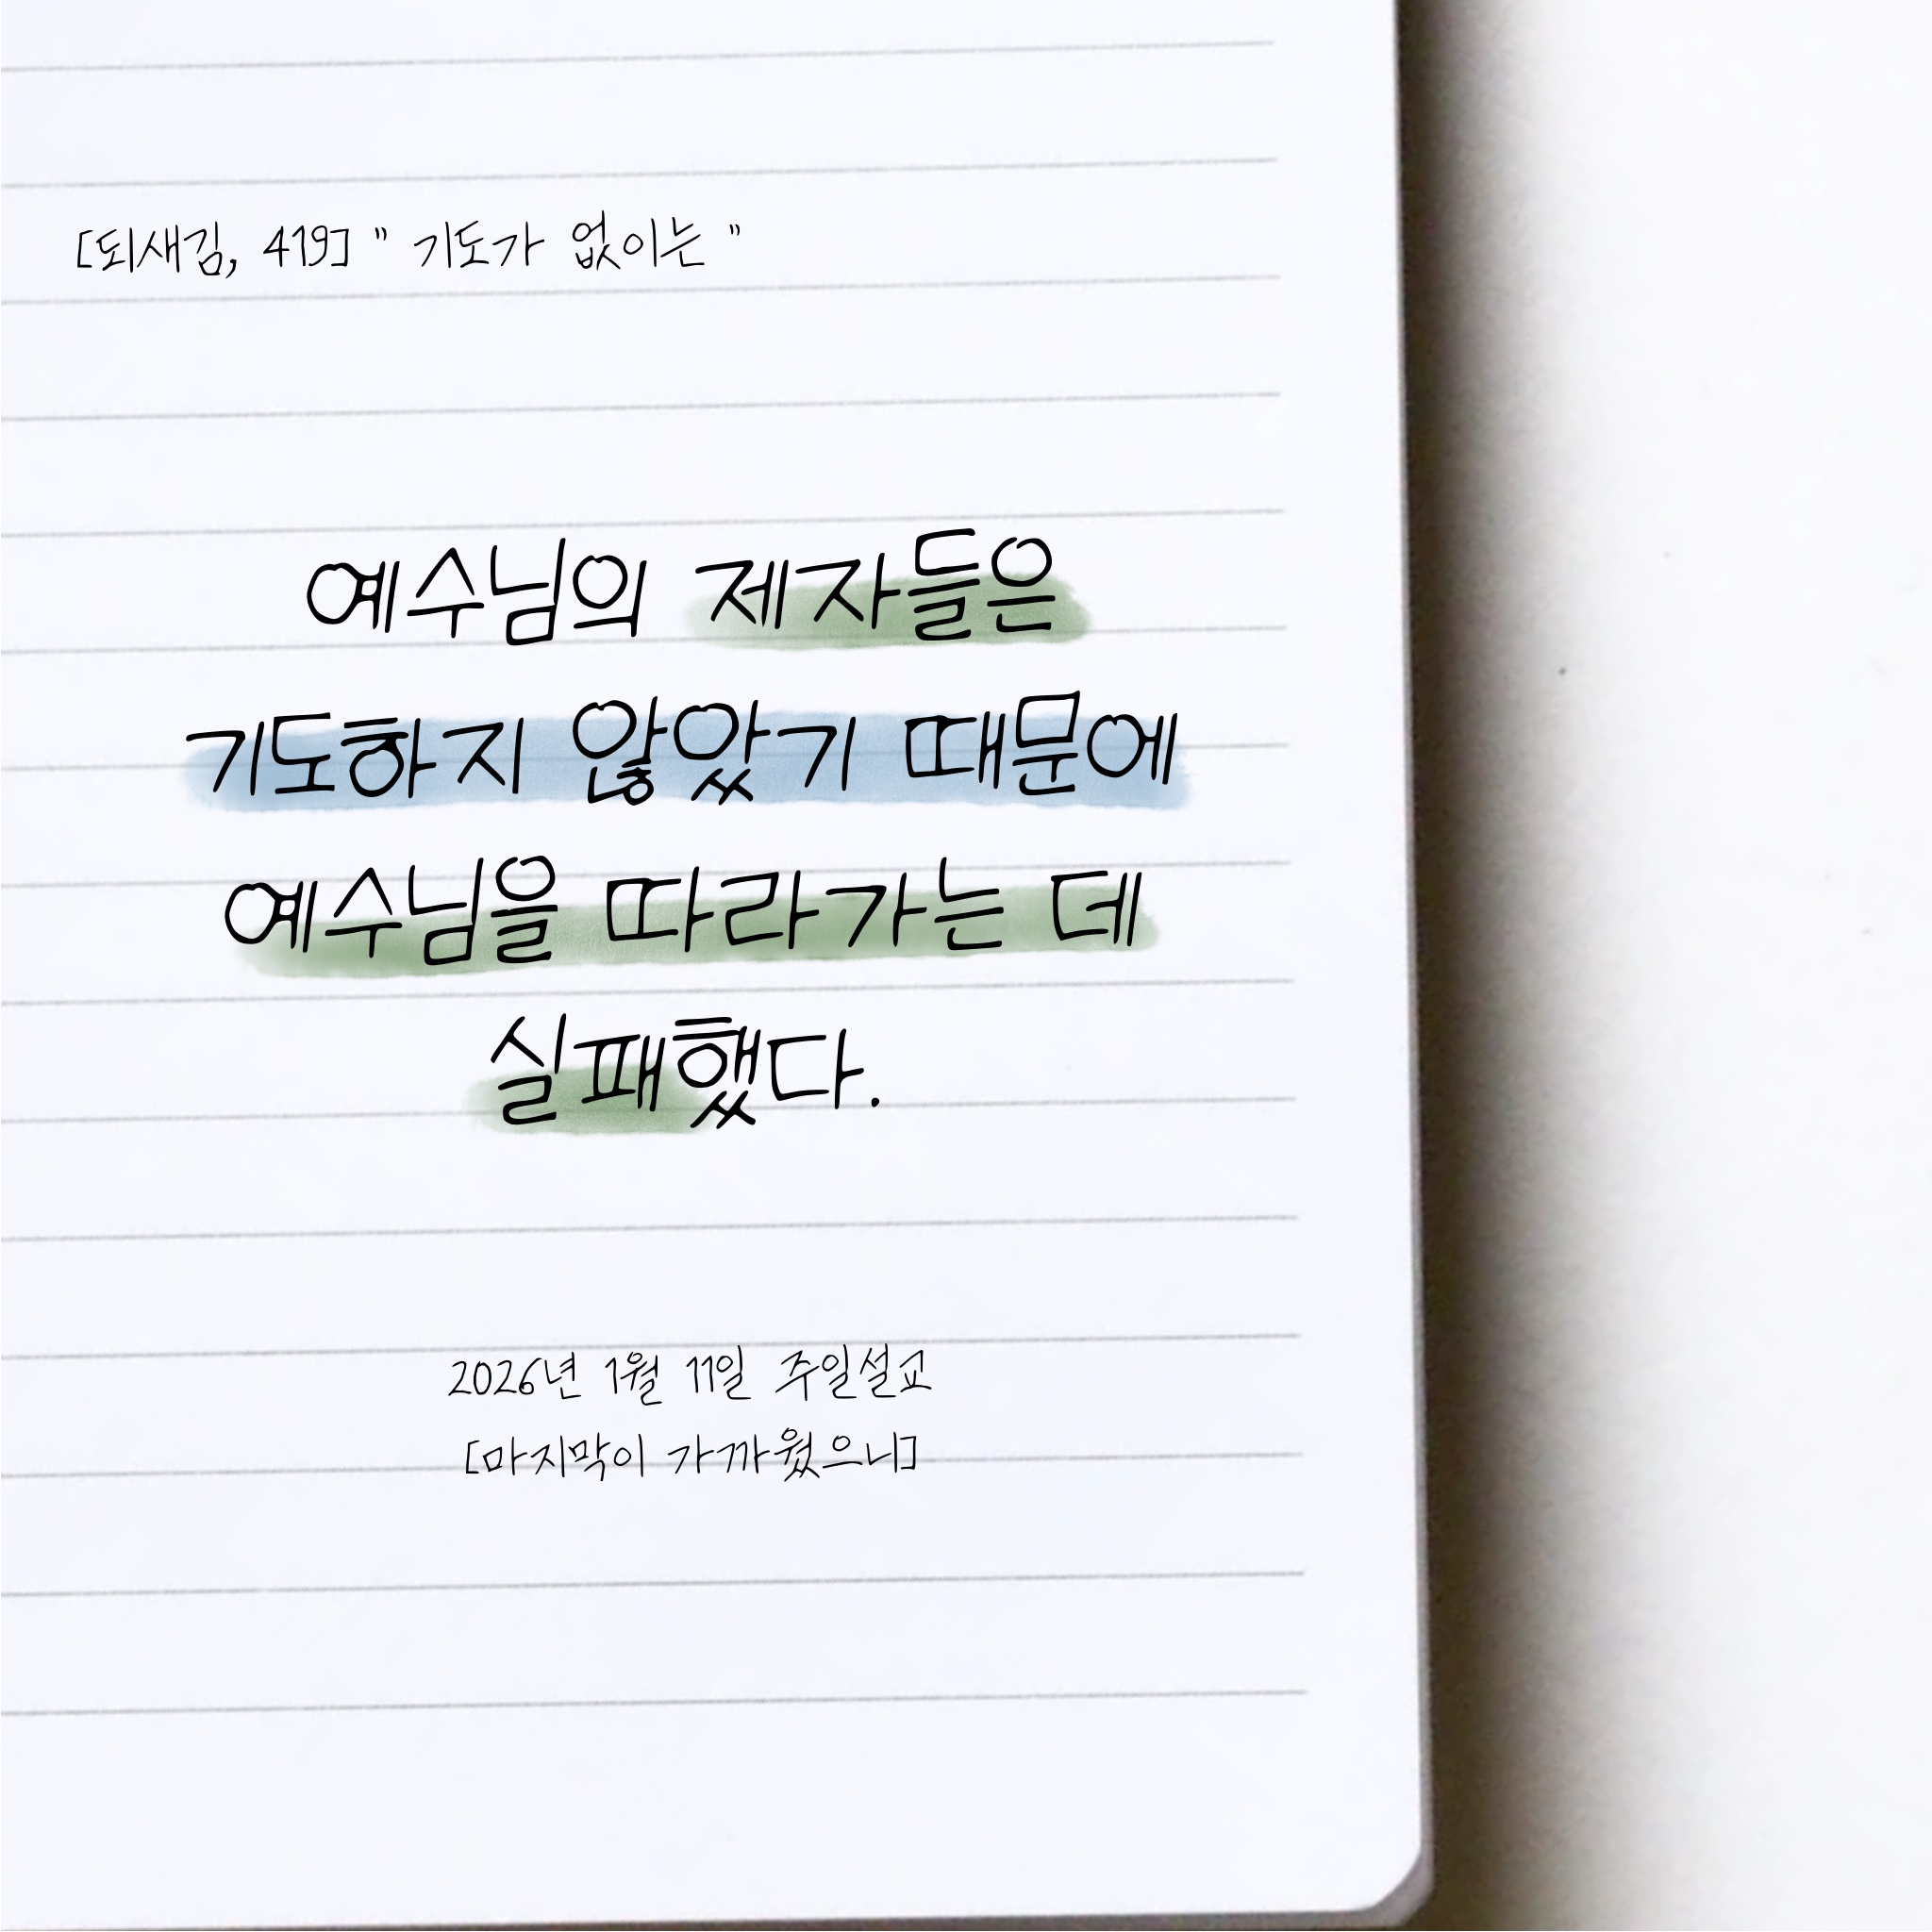 [되새김, 419] " 기도가 없이는 "
예수님의 제자들은
기도하지 않았기 때문에
예수님을 따라가는 데
실패했다.
2026년 1월 11일 주일설교
[마지막이 가까웠으니]